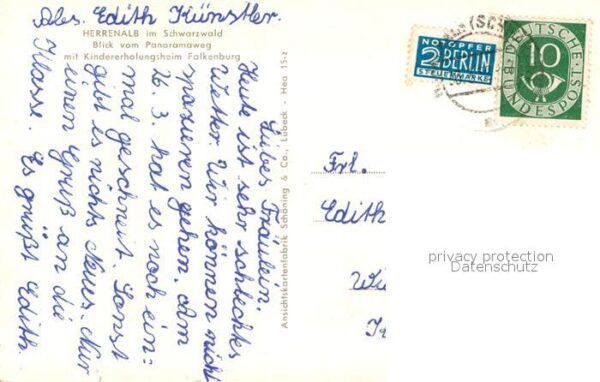 Abs. Edith Künstler.
HERRENALB im Schwarzwald
Blick vom Panoramaweg
mit Kindererholungsheim Falkenburg
Liebes Fräulein,
Heute ist sehr schlechtes
Wetter. Wir können nicht
spazieren gehen. Am
26. 3. hat es noch ein=
mal geschneit. Sonst
gibt es nichts Neues. Nur
einen Gruß an die
Klasse. Es grüßt Edith.
Ansichtskartenfabrik Schöning & Co., Lübeck - Hea 15-z
NOTOPFER
2 BERLIN
STEUERMARKE
DEUTSCHE
BUNDESPOST
10
Frl.
Edith
privacy protection
Datenschutz